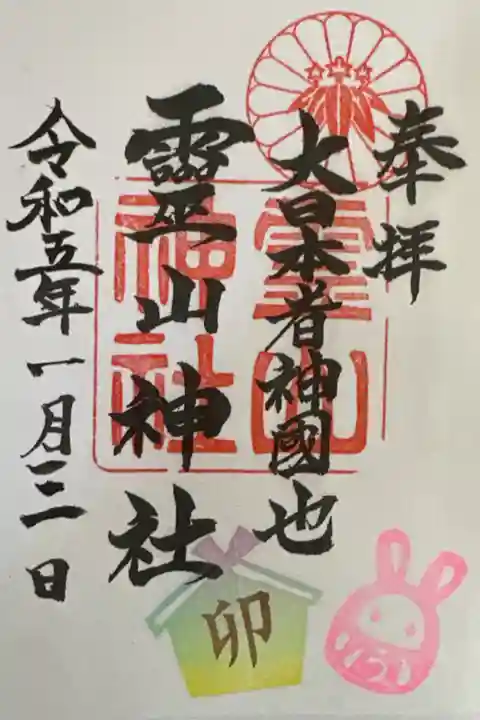 奉拝
大日本者神國也
靈山神社
令和五年一月三日
霊山
神社
卯
う